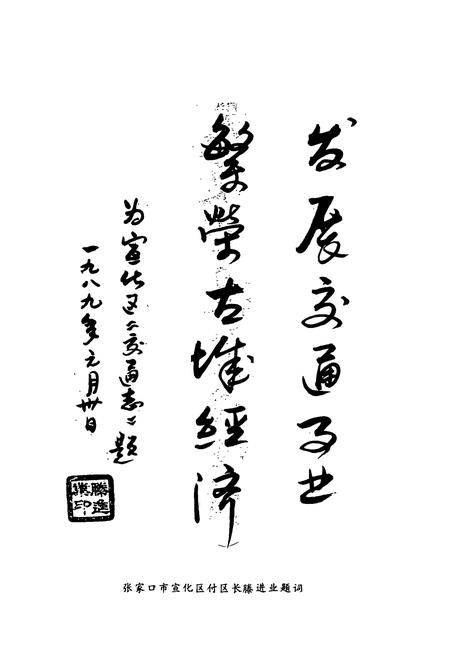 发展交通事业
繁榮古城經济
为宣化区《交通志》题
一九八九年元月卅日
滕進業印
张家口市宣化区付区长滕进业题词